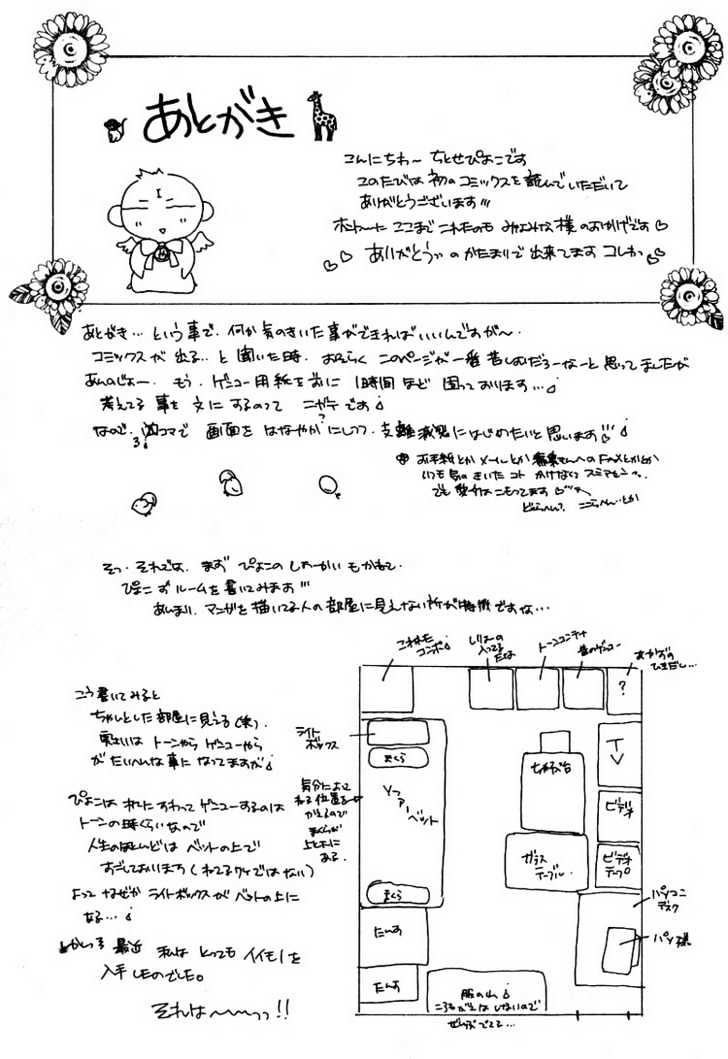 あとがき
こんにちわ〜 ちとせぴよこです
このたびは 初のコミックスを 読んでいただいて
ありがとうございます!!!
ホントーに ここまで これたのも みなみな様 のおかげです♡
ありがとうッ のかたまりで 出来てます コレわ
あとがき… という事で、何か 気のきいた 事ができれば いいんですが〜、
コミックスが 出る…と 聞いた時、おそらく このページが 一番 苦しむだろーなーと 思ってましたが
あんのじょー、もう、ゲンコー用紙を前に 1時間 ほど 困っております…
考えてる 事を 文に するのって ニガテです
なので、コマで 画面を はなやか?にしつつ、支離滅裂に はじめたいと 思います
お手紙とか メールとか 編集さんへの FAXとかとか
いつも 気の きいた コト かけない スミマセン
でも 愛は こもってます♡
どのへん? このへん…とか
そっ、それでは、まず ぴよこの しょーかい もかねて、
ぴよこ ず ルームを 書いてみます!!!
あんまし、マンガを 描いてる人の 部屋に 見えない 所が 特徴ですな…
こう 書いて みると
ちゃんとした 部屋に 見える(笑)。
実さいは トーンやら ゲンコーやら
が たいへんな 事に なってますが
ぴよこは 机に すわって ゲンコーするのは
トーンの時くらいなので
人生のほとんどは ベットの上で
すごしております(ねてるワケではない)
よって なぜか ライトボックスが ベットの上に
ある…
最近 私は とっても イイモノを
入手したのでした。
それは〜〜〜っっ!!
こわれた コンポ
しりょーの 入ってる たな
トーンコンテナ
昔のゲンコー
あかずの ひきだし…
?
ライト ボックス
まくら
ソファーベット
気分によって ねる 位置を かえるので まくらが 上と下に ある。
まくら
たんす
たんす
ちゃぶ台
ガラス テーブル
TV
ビデオ
ビデオ テープ
パソコン デスク
パソ様
服の山
ころもがえは しないので
ぜんぶでてる…